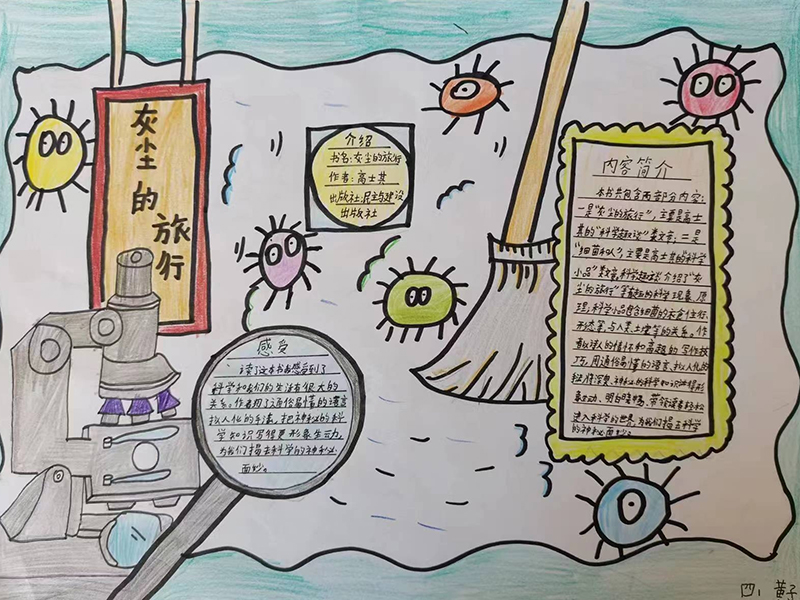 灰尘的旅行
介绍
书名:灰尘的旅行
作者:高士其
出版社:民主与建设
出版社
内容简介
本书共包含两部分内容:
一是"灰尘的旅行",主要是高士
其的"科学趣谈"类文章;二是
"细菌和人",主要是高士其的科学
小品"类文章,科学趣谈介绍了"灰
尘的旅行"等有趣的科学现象、原
理,科学小品包含细菌的衣食住行、
形态等,与人类、土壤等的关系。作
者以诗人的情怀和高超的写作技
巧,用通俗易懂的语言、拟人化的
科学知识
象生动、明白晓畅、带领读者轻松
进入科学的世界,为我们揭去科学
的神秘面纱。
感受
读了这本书我感受到了
科学与我们的生活有很大的
关系。作者用了通俗易懂的语言
拟人化的手法,把神秘的科
学知识写得更形象生动,
为我们揭去科学的神秘
面纱。
四1 黄子